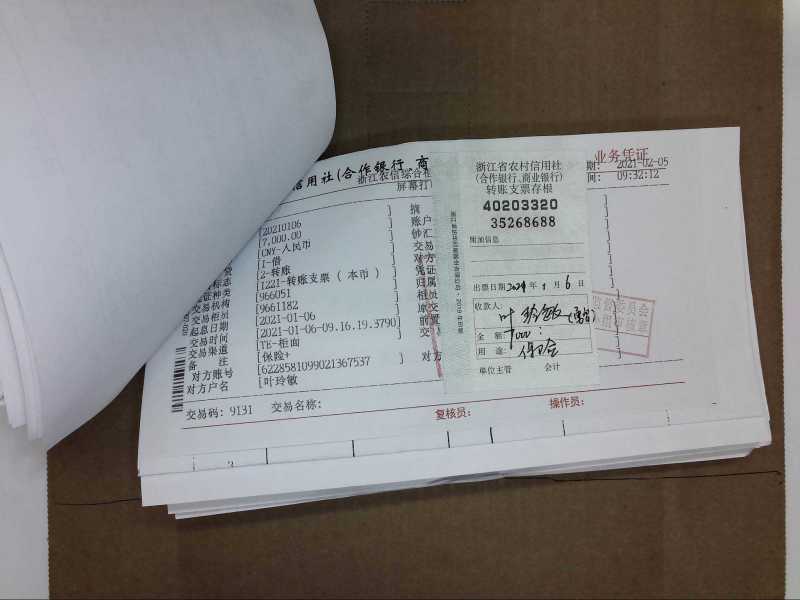 信用社(合作银行、商
业务凭证
浙江农信综合
屏幕打
期: 2021-02-05
间: 09:32:12
[20210106 ] 摘
[7,000.00 ] 账户
[CNY-人民币 ] 钞汇
[1-借 ] 交易
贷 [2-转账 ] 对方
标志 [122I-转账支票(本币) ] 凭证
证种类 [966051 ] 归属
交易机构 [9661182 ] 柜员
交易柜员 [2021-01-06 ] 原交
起息日期 [2021-01-06-09.16.19.3790] 前置
交易时间 [TE-柜面 ] 交
交易渠道 [保险+
备 注 [6228581099021367537 ] 对方
对方账号 [叶玲敏
对方户名
交易码: 9131 交易名称:
复核员: 操作员:
浙江省农村信用社
(合作银行、商业银行)
转账支票存根
40203320
35268688
附加信息
出票日期 2021 年 1 月 6 日
收款人:
叶玲敏
金 额: 7000:
用 途:
单位主管 会计